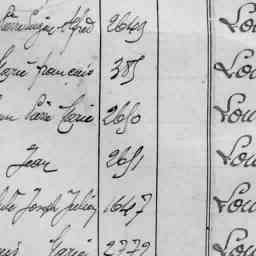 Alfred 2649 Lou
Marie françois 385 Lou
Marie 2650 Lou
Jean 2651 Lou
Joseph Julien 1647 Lou
Marie 2779 Lou